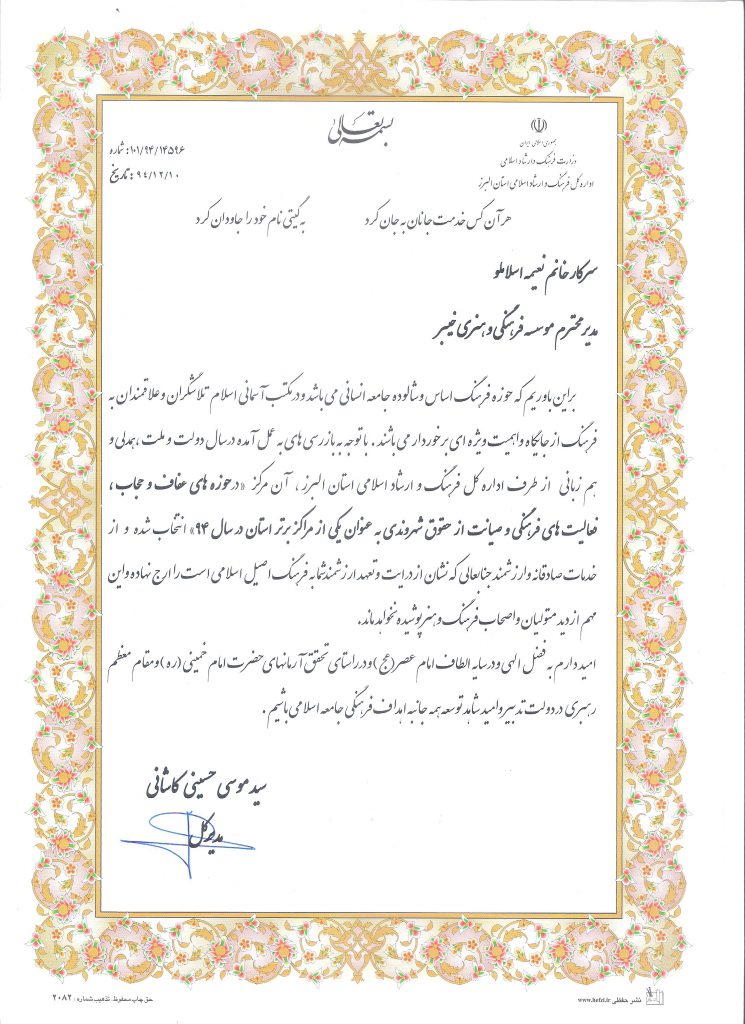 بسمه تعالی
جمهوری اسلامی ایران
وزارت فرهنگ و ارشاد اسلامی
اداره کل فرهنگ و ارشاد اسلامی استان البرز
شماره :۱۰۱/۹۴/۱۴۵۹۶
تاریخ : ۹۴/۱۲/۱۰
هر آن کس خدمت جانان به جان کرد به گیتی نام خود را جاودان کرد
سرکار خانم نعیمه اسلاملو
مدیر محترم موسسه فرهنگی و هنری خیبر
براین باوریم که حوزه فرهنگ اساس و شالوده جامعه انسانی می باشد و در مکتب آسمانی اسلام تلاشگران و علاقمندان به
فرهنگ از جایگاه و اهمیت ویژه ای برخوردار می باشند . با توجه به بازرسی های به عمل آمده در سال دولت و ملت ،همدلی و
هم زبانی از طرف اداره کل فرهنگ و ارشاد اسلامی استان البرز ، آن مرکز «در حوزه های عفاف و حجاب ،
فعالیت های فرهنگی و صیانت از حقوق شهروندی به عنوان یکی از مراکز برتر استان در سال ۹۴» انتخاب شده و از
خدمات صادقانه و ارزشمند جنابعالی که نشان از درایت و تعهد ارزشمند شما به فرهنگ اصیل اسلامی است را ارج نهاده و این
مهم از دید متولیان و اصحاب فرهنگ و هنر پوشیده نخواهد ماند.
امید دارم به فضل الهی و در سایه الطاف امام عصر(عج )و در راستای تحقق آرمانهای حضرت امام خمینی (ره )و مقام معظم
رهبری در دولت تدبیر و امید شاهد توسعه همه جانبه اهداف فرهنگی جامعه اسلامی باشیم .
سید موسی حسینی کاشانی
مدیر کل
نشر حفظی www.hefzi.ir
حق چاپ محفوظ. تذهیب شماره : ۲۰۸۲